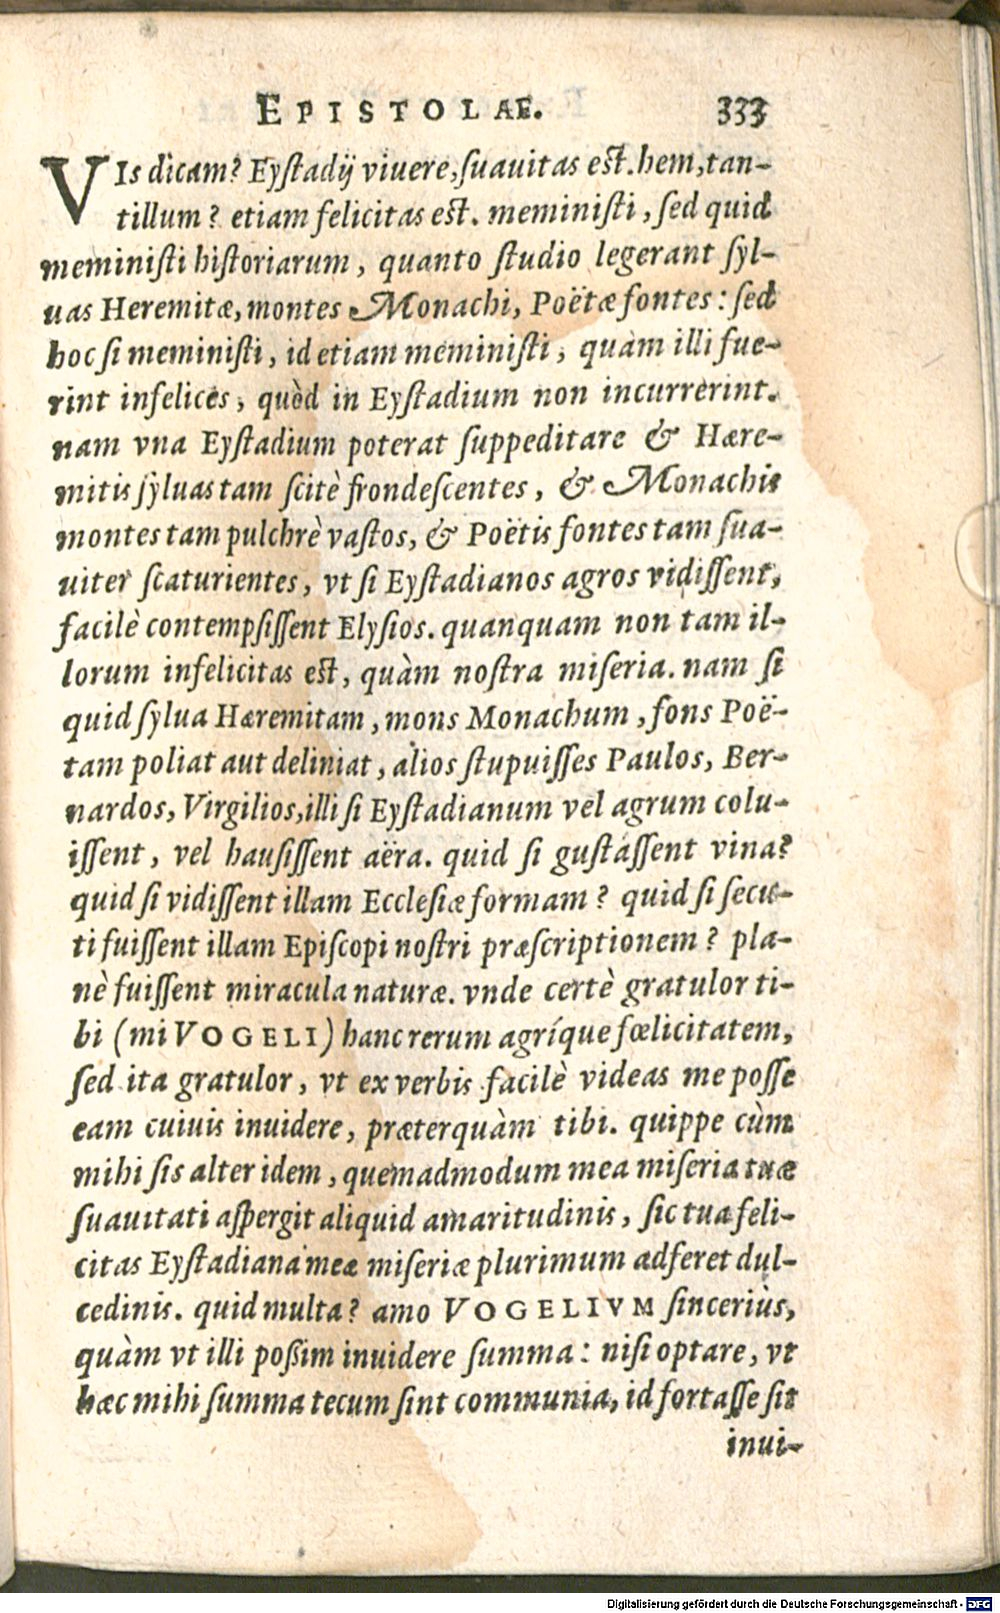 EPISTOLAE. 333
VIs dicam? Eyſtadij viuere, ſuauitas eſt. hem, tan-
tillum? etiam felicitas eſt. meminiſti, ſed quid
meminiſti hiſtoriarum, quanto ſtudio legerant ſyl-
uas Heremitæ, montes Monachi, Poëtæ fontes: ſed
hoc ſi meminiſti, id etiam meminiſti, quàm illi fue-
rint infelices, quòd in Eyſtadium non incurrerint.
nam vna Eyſtadium poterat ſuppeditare & Hære-
mitis ſyluas tam ſcitè frondeſcentes, & Monachis
montes tam pulchrè vaſtos, & Poëtis fontes tam ſua-
uiter ſcaturientes, vt ſi Eyſtadianos agros vidiſſent,
facilè contempſiſſent Elyſios. quanquam non tam il-
lorum infelicitas eſt, quàm noſtra miſeria. nam ſi
quid ſylua Hæremitam, mons Monachum, fons Poë-
tam poliat aut deliniat, alios ſtupuiſſes Paulos, Ber-
nardos, Virgilios, illi ſi Eyſtadianum vel agrum colu-
iſſent, vel hauſiſſent aëra. quid ſi guſtaſſent vina?
quid ſi vidiſſent illam Eccleſiæ formam? quid ſi ſecu-
ti fuiſſent illam Epiſcopi noſtri præſcriptionem? pla-
nè fuiſſent miracula naturæ. vnde certè gratulor ti-
bi (mi VOGELI) hanc rerum agríque fœlicitatem,
ſed ita gratulor, vt ex verbis facilè videas me poſſe
eam cuiuis inuidere, præterquàm tibi. quippe cùm
mihi ſis alter idem, quemadmodum mea miſeria tuæ
ſuauitati aſpergit aliquid amaritudinis, ſic tua feli-
citas Eyſtadiana meæ miſeriæ plurimum adferet dul-
cedinis. quid multa? amo VOGELIVM ſinceriùs,
quàm vt illi poßim inuidere ſumma: niſi optare, vt
hæc mihi ſumma tecum ſint communia, id fortaſſe ſit
inui-
Digitalisierung gefördert durch die Deutsche Forschungsgemeinschaft - DFG